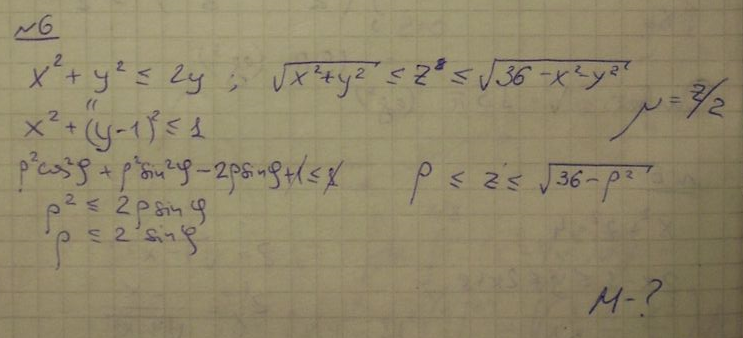 №6
x² + y² ≤ 2y ; √(x²+y²) ≤ z ≤ √(36-x²-y²)
μ = z/2
x² + (y-1)² ≤ 1
ρ²cos²φ + ρ²sin²φ - 2ρsinφ + 1 ≤ 1 ρ ≤ z ≤ √(36-ρ²)
ρ² ≤ 2ρsinφ
ρ ≤ 2sinφ
M - ?